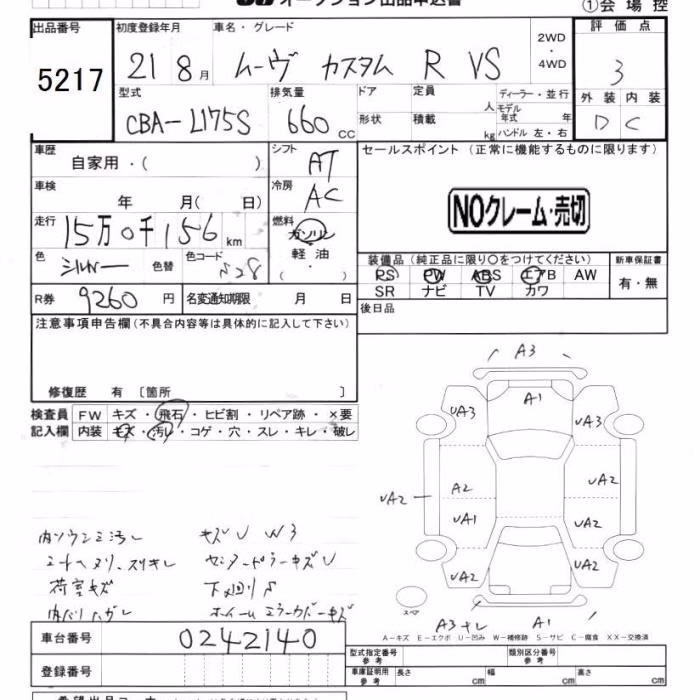 オークション出品申込書
①会場控
出品番号 初度登録年月 車名・グレード 2WD・4WD 評価点
5217 21 8月 ムーヴ カスタム R VS 3
型式 排気量 ドア 定員 人 ディーラー・並行 外装 内装
CBA-L175S 660 CC 形状 積載 kg モデル年式 年 ハンドル 左・右 D C
車歴 自家用・( ) シフト AT セールスポイント（正常に機能するものに限ります）
車検 年 月( 日) 冷房 AC
NOクレーム・売切
走行 15万0千156km 燃料 ガソリン 軽油 ( ・ )
色 シルバー 色替 色コード S28
装備品（純正品に限り○をつけてください） 新車保証書
PS PW ABS エアB AW 有・無
SR ナビ TV カワ
R券 9260円 名変通知期限 月 日 後日品
注意事項申告欄（不具合内容等は具体的に記入して下さい）
修復歴 有 〔箇所 〕
検査員 FW キズ・飛石・ヒビ割・リペア跡・×要
記入欄 内装 キズ・汚レ・コゲ・穴・スレ・キレ・破レ
A3
A1
UA3 UA3
A2 UA2
UA2 UA1 UA2
UA2 UA2
スペア
A3 A1
キズU W3
シートヘタリ、スリキレ センターピラーキズU
荷室キズ 下廻りS
内バリハガレ ホイール ミラーカバーキズ
A－キズ E－エクボ U－凹み W－補修跡 S－サビ C－腐食 XX－交換済
車台番号 0242140
登録番号
型式指定番号 参考 類別区分番号 参考
車庫証明用 参考 長さ cm 幅 cm 高さ cm
希望出品コーナー